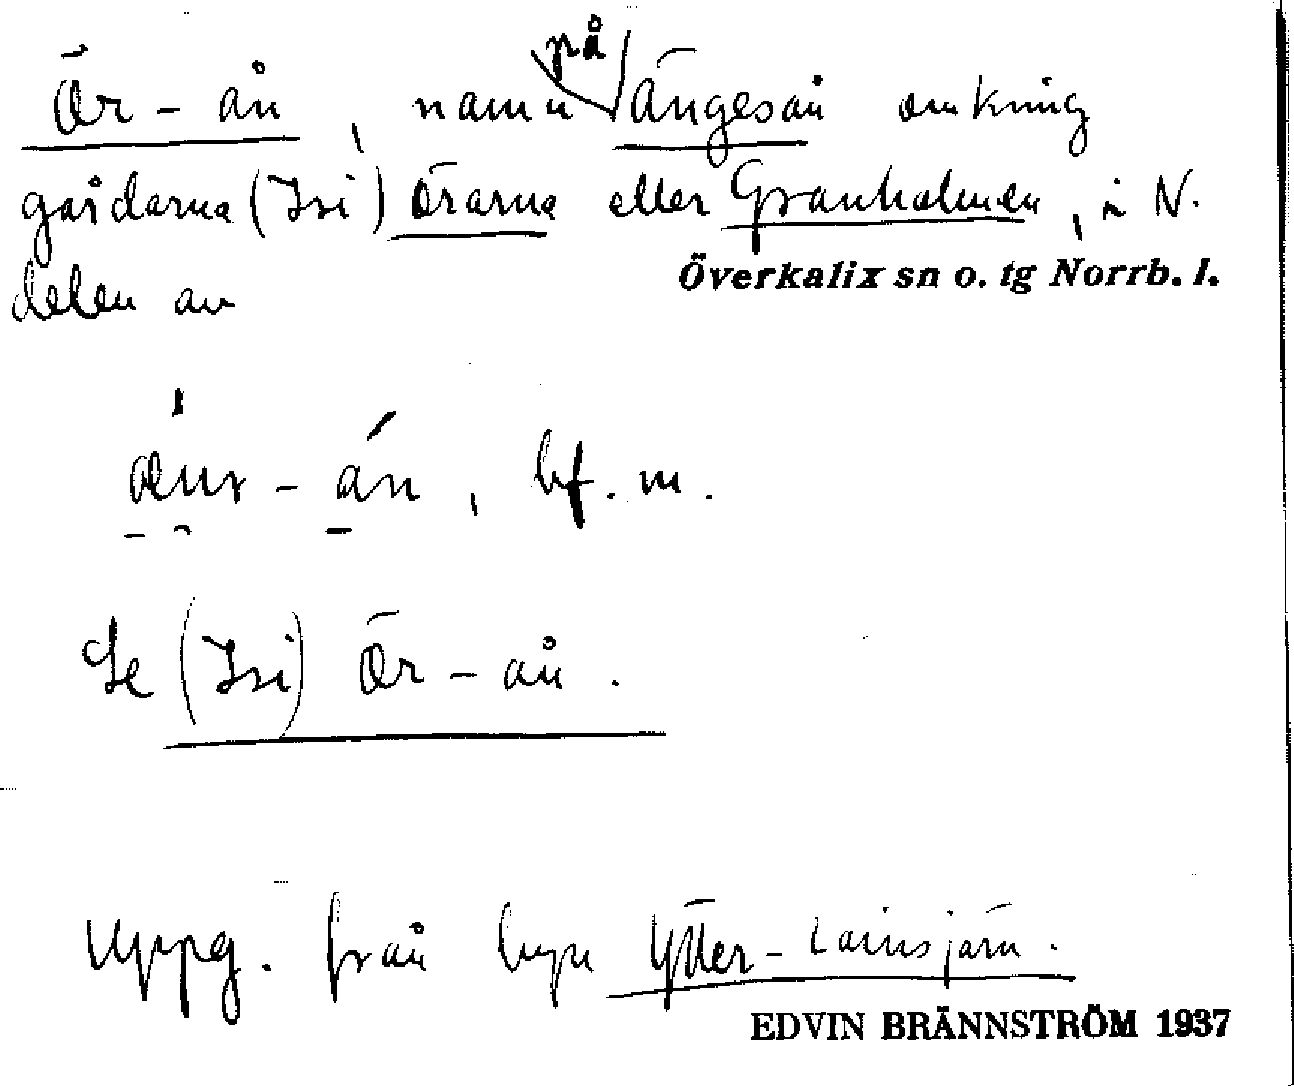 Ör-ån, namn på Ängesån omkring
gårdarna (Isi) Örarna eller Granholmen, i N.
delen av Överkalix sn o. tg Norrb. l.
œur-án, bf. m.
Se (Isi) Ör-ån.
Uppg. från byn Ytter-Lainsjärn.
EDVIN BRÄNNSTRÖM 1937